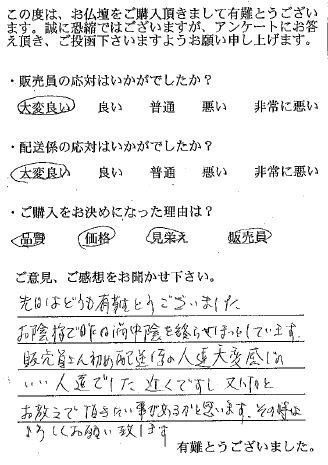 この度は、お仏壇をご購入頂きまして有難とうござい
ます。誠に恐縮ではございますが、アンケートにお答
え頂き、ご投函下さいますようお願い申し上げます。
・販売員の応対はいかがでしたか？
大変良い 良い 普通 悪い 非常に悪い
・配送係の応対はいかがでしたか？
大変良い 良い 普通 悪い 非常に悪い
・ご購入をお決めになった理由は？
品質 価格 見栄え 販売員
ご意見、ご感想をお聞かせ下さい。
先日はどうも有難とうございました
お陰様で昨日満中陰を終らせほっとしています。
販売員さん初め配送係の人達大変感じの
いい人達でした 近くですし 又何かと
お教えて頂きたい事があるかと思います。その時は
よろしくお願い致します
有難とうございました。